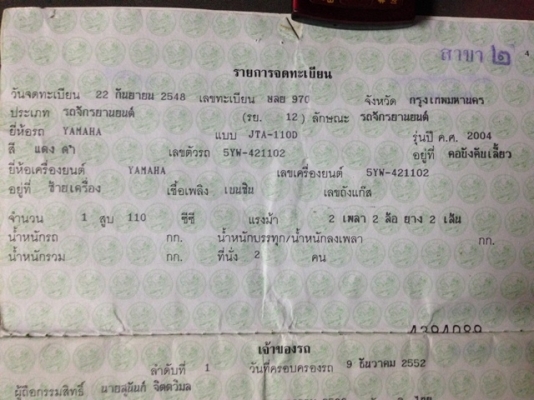 สาขา ๒
4
รายการจดทะเบียน
วันจดทะเบียน 22 กันยายน 2548 เลขทะเบียน 970 จังหวัด กรุงเทพมหานคร
ประเภท รถจักรยานยนต์ (รย. 12) ลักษณะ รถจักรยานยนต์
ยี่ห้อรถ YAMAHA แบบ JTA-110D รุ่นปี ค.ศ. 2004
สี แดง ดำ เลขตัวรถ 5YW-421102 อยู่ที่ คอถังคันเลี้ยว
ยี่ห้อเครื่องยนต์ YAMAHA เลขเครื่องยนต์ 5YW-421102
อยู่ที่ ซ้ายเครื่อง เชื้อเพลิง เบนซิน เลขถังแก๊ส
จำนวน 1 สูบ 110 ซีซี แรงม้า 2 เพลา 2 ล้อ ยาง 2 เส้น
น้ำหนักรถ กก. น้ำหนักบรรทุก/น้ำหนักลงเพลา กก.
น้ำหนักรวม กก. ที่นั่ง 2 คน
เจ้าของรถ
ลำดับที่ 1 วันที่ครอบครองรถ 9 ธันวาคม 2552
ผู้ถือกรรมสิทธิ์